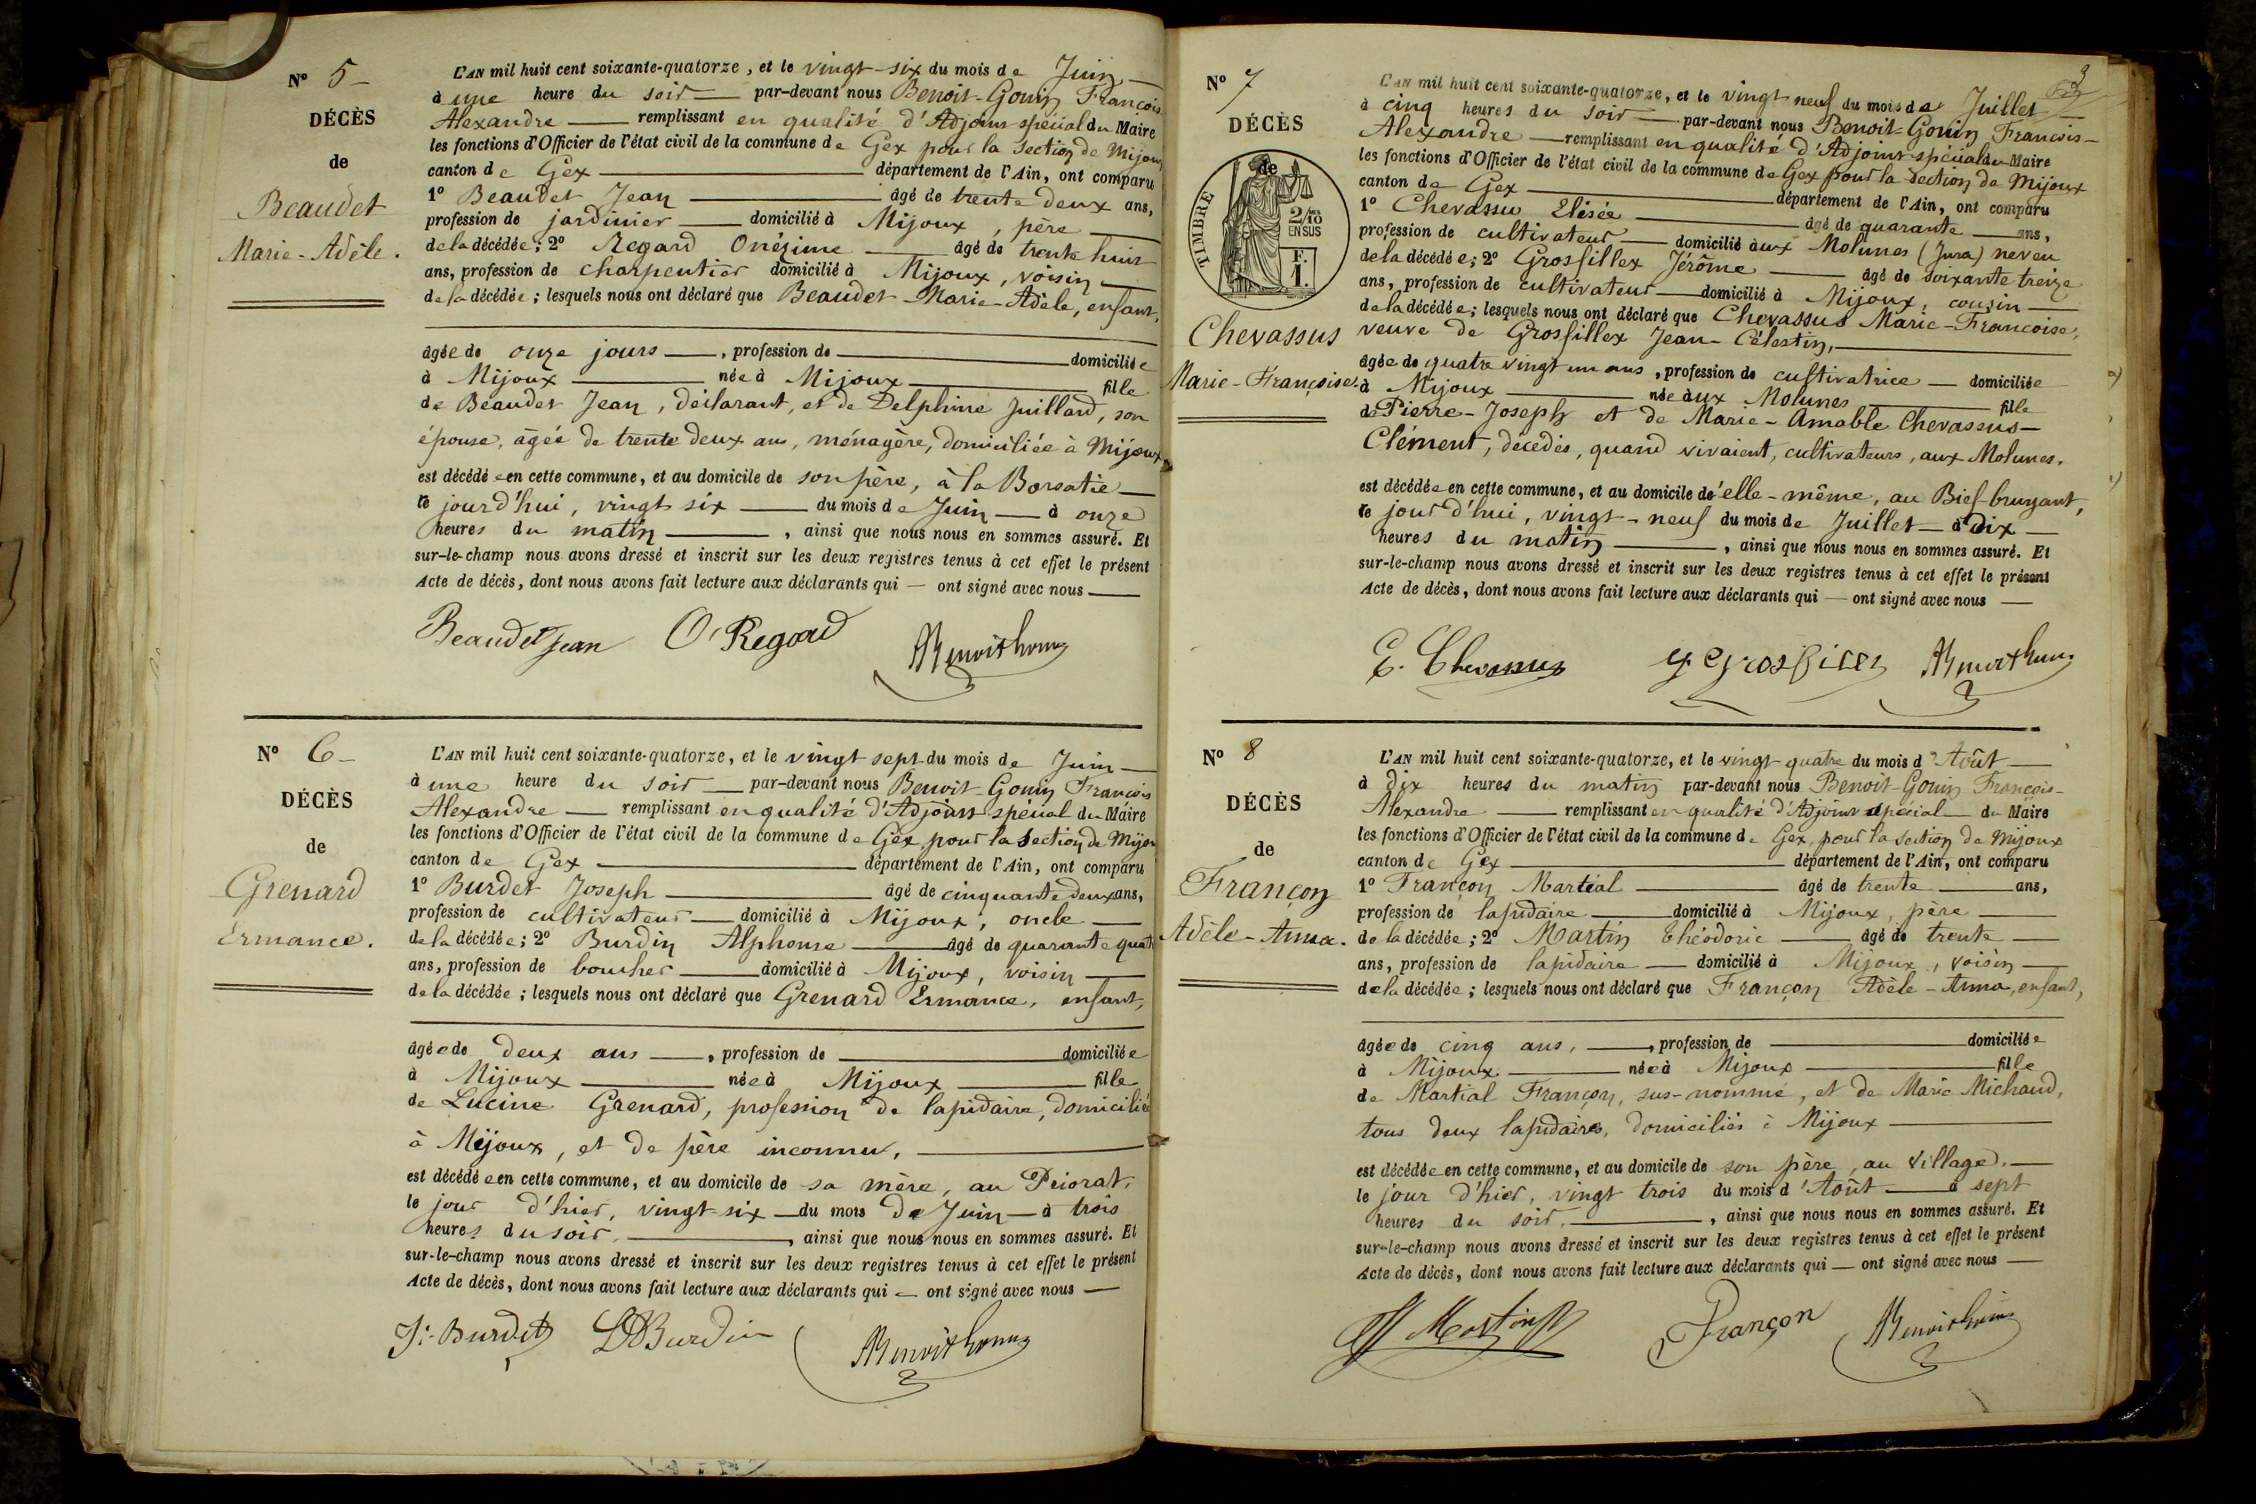 N° 5
DÉCÈS
de
Beaudet
Marie-Adèle.
L'AN mil huit cent soixante-quatorze, et le vingt-six du mois de Juin
à une heure du soir par-devant nous Benoit-Gonin François
Alexandre remplissant en qualité d'Adjoint spécial du Maire
les fonctions d'Officier de l'état civil de la commune de Gex pour la Section de Mijoux
canton de Gex département de l'Ain, ont comparu
1° Beaudet Jean âgé de trente deux ans,
profession de jardinier domicilié à Mijoux, père
de la décédée; 2° Regard Onézime âgé de trente huit
ans, profession de charpentier domicilié à Mijoux, voisin
de la décédée; lesquels nous ont déclaré que Beaudet Marie-Adèle, enfant,
âgée de onze jours, profession de domiciliée
à Mijoux née à Mijoux fille
de Beaudet Jean, déclarant, et de Delphine Juillard, son
épouse, âgée de trente deux ans, ménagère, domiciliée à Mijoux
est décédée en cette commune, et au domicile de son père, à la Borsatie
le jourd'hui, vingt six du mois de Juin à onze
heures du matin, ainsi que nous nous en sommes assuré. Et
sur-le-champ nous avons dressé et inscrit sur les deux registres tenus à cet effet le présent
Acte de décès, dont nous avons fait lecture aux déclarants qui — ont signé avec nous
Beaudet Jean O. Regard ABenoitGonin
N° 6
DÉCÈS
de
Grenard
Ermance.
L'AN mil huit cent soixante-quatorze, et le vingt sept du mois de Juin
à une heure du soir par-devant nous Benoit-Gonin François
Alexandre remplissant en qualité d'Adjoint spécial du Maire
les fonctions d'Officier de l'état civil de la commune de Gex, pour la Section de Mijoux
canton de Gex département de l'Ain, ont comparu
1° Burdet Joseph âgé de cinquante deux ans,
profession de cultivateur domicilié à Mijoux, oncle
de la décédée; 2° Burdin Alphonse âgé de quarante quat
ans, profession de boucher domicilié à Mijoux, voisin
de la décédée; lesquels nous ont déclaré que Grenard Ermance, enfant,
âgée de deux ans, profession de domiciliée
à Mijoux née à Mijoux fille
de Lucine Grenard, profession de lapidaire, domiciliée
à Mijoux, et de père inconnu,
est décédée en cette commune, et au domicile de sa mère, au Priorat,
le jour d'hier, vingt-six du mois de Juin à trois
heures du soir, ainsi que nous nous en sommes assuré. Et
sur-le-champ nous avons dressé et inscrit sur les deux registres tenus à cet effet le présent
Acte de décès, dont nous avons fait lecture aux déclarants qui — ont signé avec nous
J. Burdet Burdin ABenoitGonin
3
N° 7
DÉCÈS
de
TIMBRE
2/10
EN SUS
F.
1.
Chevassus
Marie-Françoise.
L'AN mil huit cent soixante-quatorze, et le vingt neuf du mois de Juillet
à cinq heures du soir par-devant nous Benoit-Gonin François-
Alexandre remplissant en qualité d'Adjoint spécial du Maire
les fonctions d'Officier de l'état civil de la commune de Gex pour la Section de Mijoux
canton de Gex département de l'Ain, ont comparu
1° Chevassu Elisée âgé de quarante ans,
profession de cultivateur domicilié aux Molunes (Jura) neveu
de la décédée; 2° Grosfillex Jérôme âgé de soixante treize
ans, profession de cultivateur domicilié à Mijoux, cousin
de la décédée; lesquels nous ont déclaré que Chevassus Marie-Françoise,
veuve de Grosfillex Jean-Célestin,
âgée de quatre vingt un ans, profession de cultivatrice domiciliée
à Mijoux née aux Molunes fille
de Pierre-Joseph et de Marie-Amable Chevassus-
Clément, décédés, quand vivaient, cultivateurs, aux Molunes.
est décédée en cette commune, et au domicile d'elle-même, au Bief-bruyant,
le jourd'hui, vingt-neuf du mois de Juillet à dix
heures du matin, ainsi que nous nous en sommes assuré. Et
sur-le-champ nous avons dressé et inscrit sur les deux registres tenus à cet effet le présent
Acte de décès, dont nous avons fait lecture aux déclarants qui — ont signé avec nous
E. Chevassus J Grosfilex ABenoitGonin
N° 8
DÉCÈS
de
Françon
Adèle-Anna.
L'AN mil huit cent soixante-quatorze, et le vingt-quatre du mois d'Août
à dix heures du matin par-devant nous Benoit-Gonin François-
Alexandre remplissant en qualité d'Adjoint spécial du Maire
les fonctions d'Officier de l'état civil de la commune de Gex, pour la section de Mijoux
canton de Gex département de l'Ain, ont comparu
1° Françon Martial âgé de trente ans,
profession de lapidaire domicilié à Mijoux, père
de la décédée; 2° Martin Théodorie âgé de trente
ans, profession de lapidaire domicilié à Mijoux, voisin
de la décédée; lesquels nous ont déclaré que Françon Adèle-Anna, enfant,
âgée de cinq ans, profession de domiciliée
à Mijoux née à Mijoux fille
de Martial Françon, sus-nommé, et de Marie Michaud,
tous deux lapidaires, domiciliés à Mijoux
est décédée en cette commune, et au domicile de son père, au Village.
le jour d'hier, vingt trois du mois d'Août à sept
heures du soir, ainsi que nous nous en sommes assuré. Et
sur-le-champ nous avons dressé et inscrit sur les deux registres tenus à cet effet le présent
Acte de décès, dont nous avons fait lecture aux déclarants qui — ont signé avec nous
Martin Françon ABenoitGonin